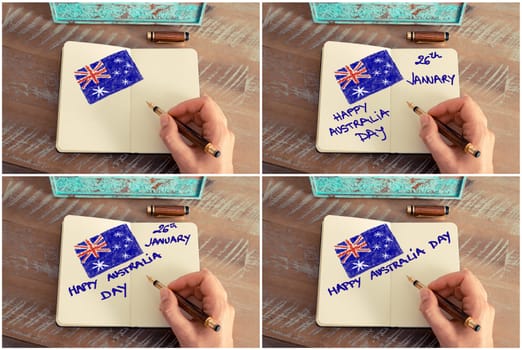 26th
JANUARY
HAPPY
AUSTRALIA
DAY
26th
JANUARY
HAPPY AUSTRALIA
DAY
HAPPY AUSTRALIA DAY